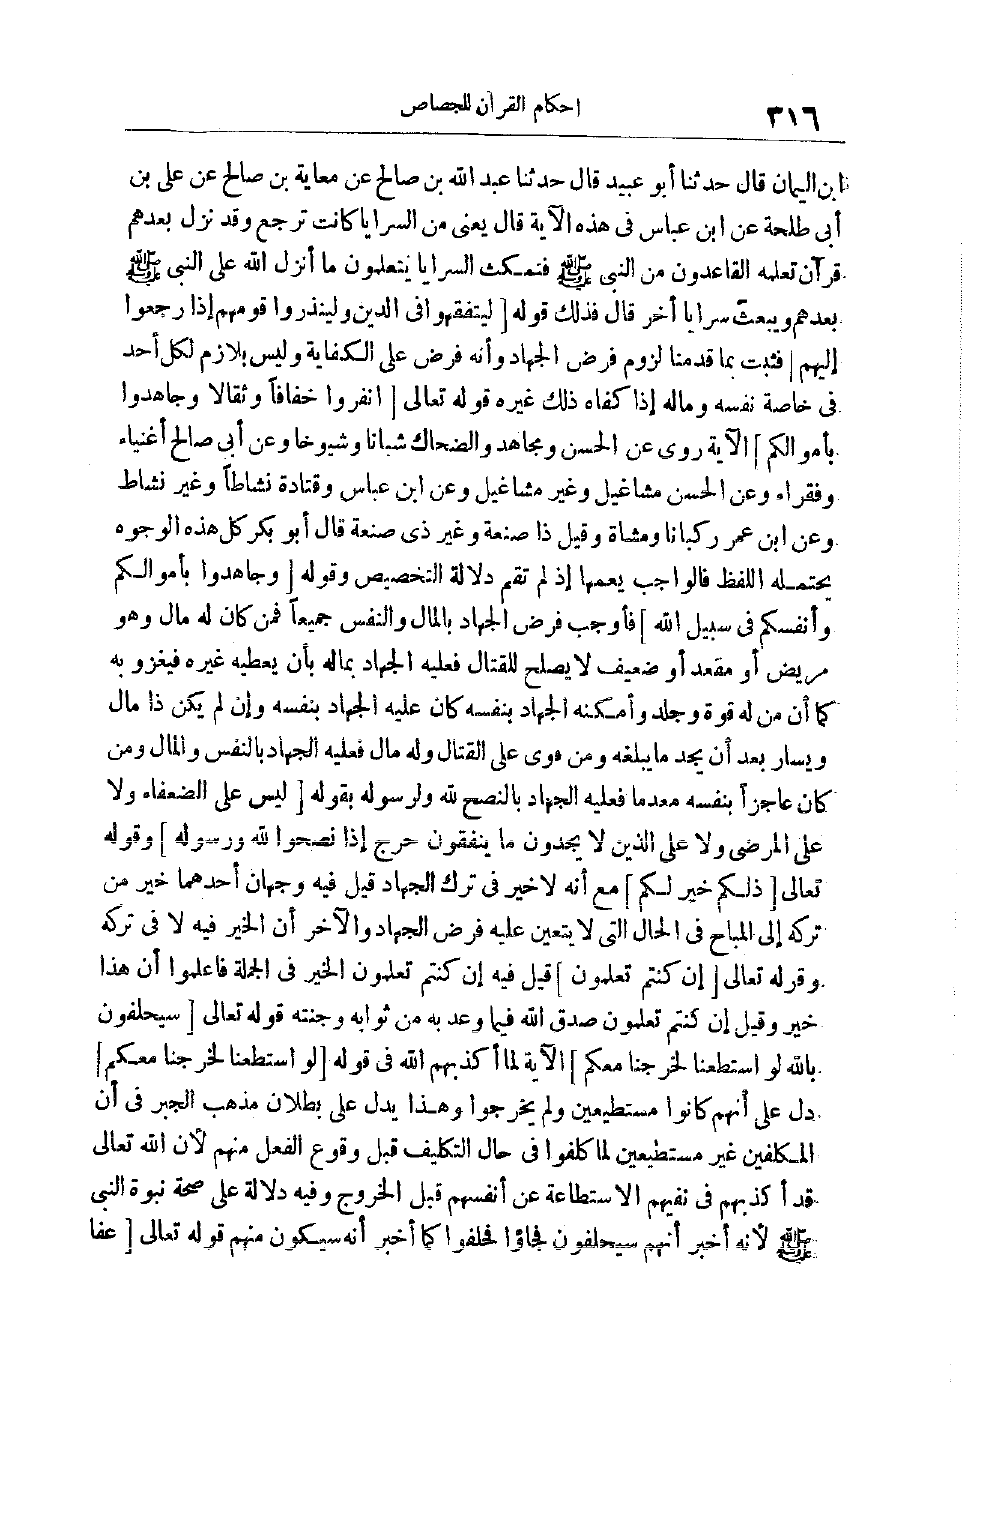 ٣١٦
احكام القرآن للجصاص
ابن اليمان قال حدثنا أبو عبيد قال حدثنا عبد الله بن صالح عن معاية بن صالح عن على بن
أبى طلحة عن ابن عباس فى هذه الآية قال يعنى من السرايا كانت ترجع وقد نزل بعدهم
قرآن تعلمه القاعدون من النبى ﷺ فتمكث السرايا يتعلمون ما أنزل الله على النبى ﷺ
بعدهم ويبعث سرايا أخر قال فذلك قوله [ ليتفقهوا فى الدين ولينذروا قومهم إذا رجعوا
إليهم ] فثبت بما قدمنا لزوم فرض الجهاد وأنه فرض على الكفاية وليس بلازم لكل أحد
فى خاصة نفسه وماله إذا كفاه ذلك غيره قوله تعالى [ انفروا خفافاً وثقالا وجاهدوا
بأموالكم ] الآية روى عن الحسن ومجاهد والضحاك شبانا وشيوخا وعن أبى صالح أغنياء
وفقراء وعن الحسن مشاغيل وغير مشاغيل وعن ابن عباس وقتادة نشاطاً وغير نشاط
وعن ابن عمر ركبانا ومشاة وقيل ذا صنعة وغير ذى صنعة قال أبو بكر كل هذه الوجوه
يحتمله اللفظ فالواجب يعمها إذ لم تقم دلالة التخصيص وقوله [ وجاهدوا بأموالكم
وأنفسكم فى سبيل الله ] فأوجب فرض الجهاد بالمال والنفس جميعاً فمن كان له مال وهو
مريض أو مقعد أو ضعيف لا يصلح للقتال فعليه الجهاد بماله بأن يعطيه غيره فيغزو به
كما أن من له قوة وجلد وأمكنه الجهاد بنفسه كان عليه الجهاد بنفسه وإن لم يكن ذا مال
ويسار بعد أن يجد ما يبلغه ومن قوى على القتال وله مال فعليه الجهاد بالنفس والمال ومن
كان عاجزاً بنفسه معدما فعليه الجهاد بالنصح لله ولرسوله بقوله [ ليس على الضعفاء ولا
على المرضى ولا على الذين لا يجدون ما ينفقون حرج إذا نصحوا لله ورسوله ] وقوله
تعالى [ ذلكم خير لكم ] مع أنه لا خير فى ترك الجهاد قيل فيه وجهان أحدهما خير من
تركه إلى المباح فى الحال التى لا يتعين عليه فرض الجهاد والآخر أن الخير فيه لا فى تركه
وقوله تعالى [ إن كنتم تعلمون ] قيل فيه إن كنتم تعلمون الخير فى الجملة فاعلموا أن هذا
خير وقيل إن كنتم تعلمون صدق الله فيما وعد به من ثوابه وجنته قوله تعالى [ سيحلفون
بالله لو استطعنا لخرجنا معكم ] الآية لما أكذبهم الله فى قوله [ لو استطعنا لخرجنا معكم ]
دل على أنهم كانوا مستطيعين ولم يخرجوا وهذا يدل على بطلان مذهب الجبر فى أن
المكلفين غير مستطيعين لما كلفوا فى حال التكليف قبل وقوع الفعل منهم لأن الله تعالى
قد أكذبهم فى نفيهم الاستطاعة عن أنفسهم قبل الخروج وفيه دلالة على صحة نبوة النبى
ﷺ لأنه أخبر أنهم سيحلفون فجاؤا فحلفوا كما أخبر أنه سيكون منهم قوله تعالى [ عفا